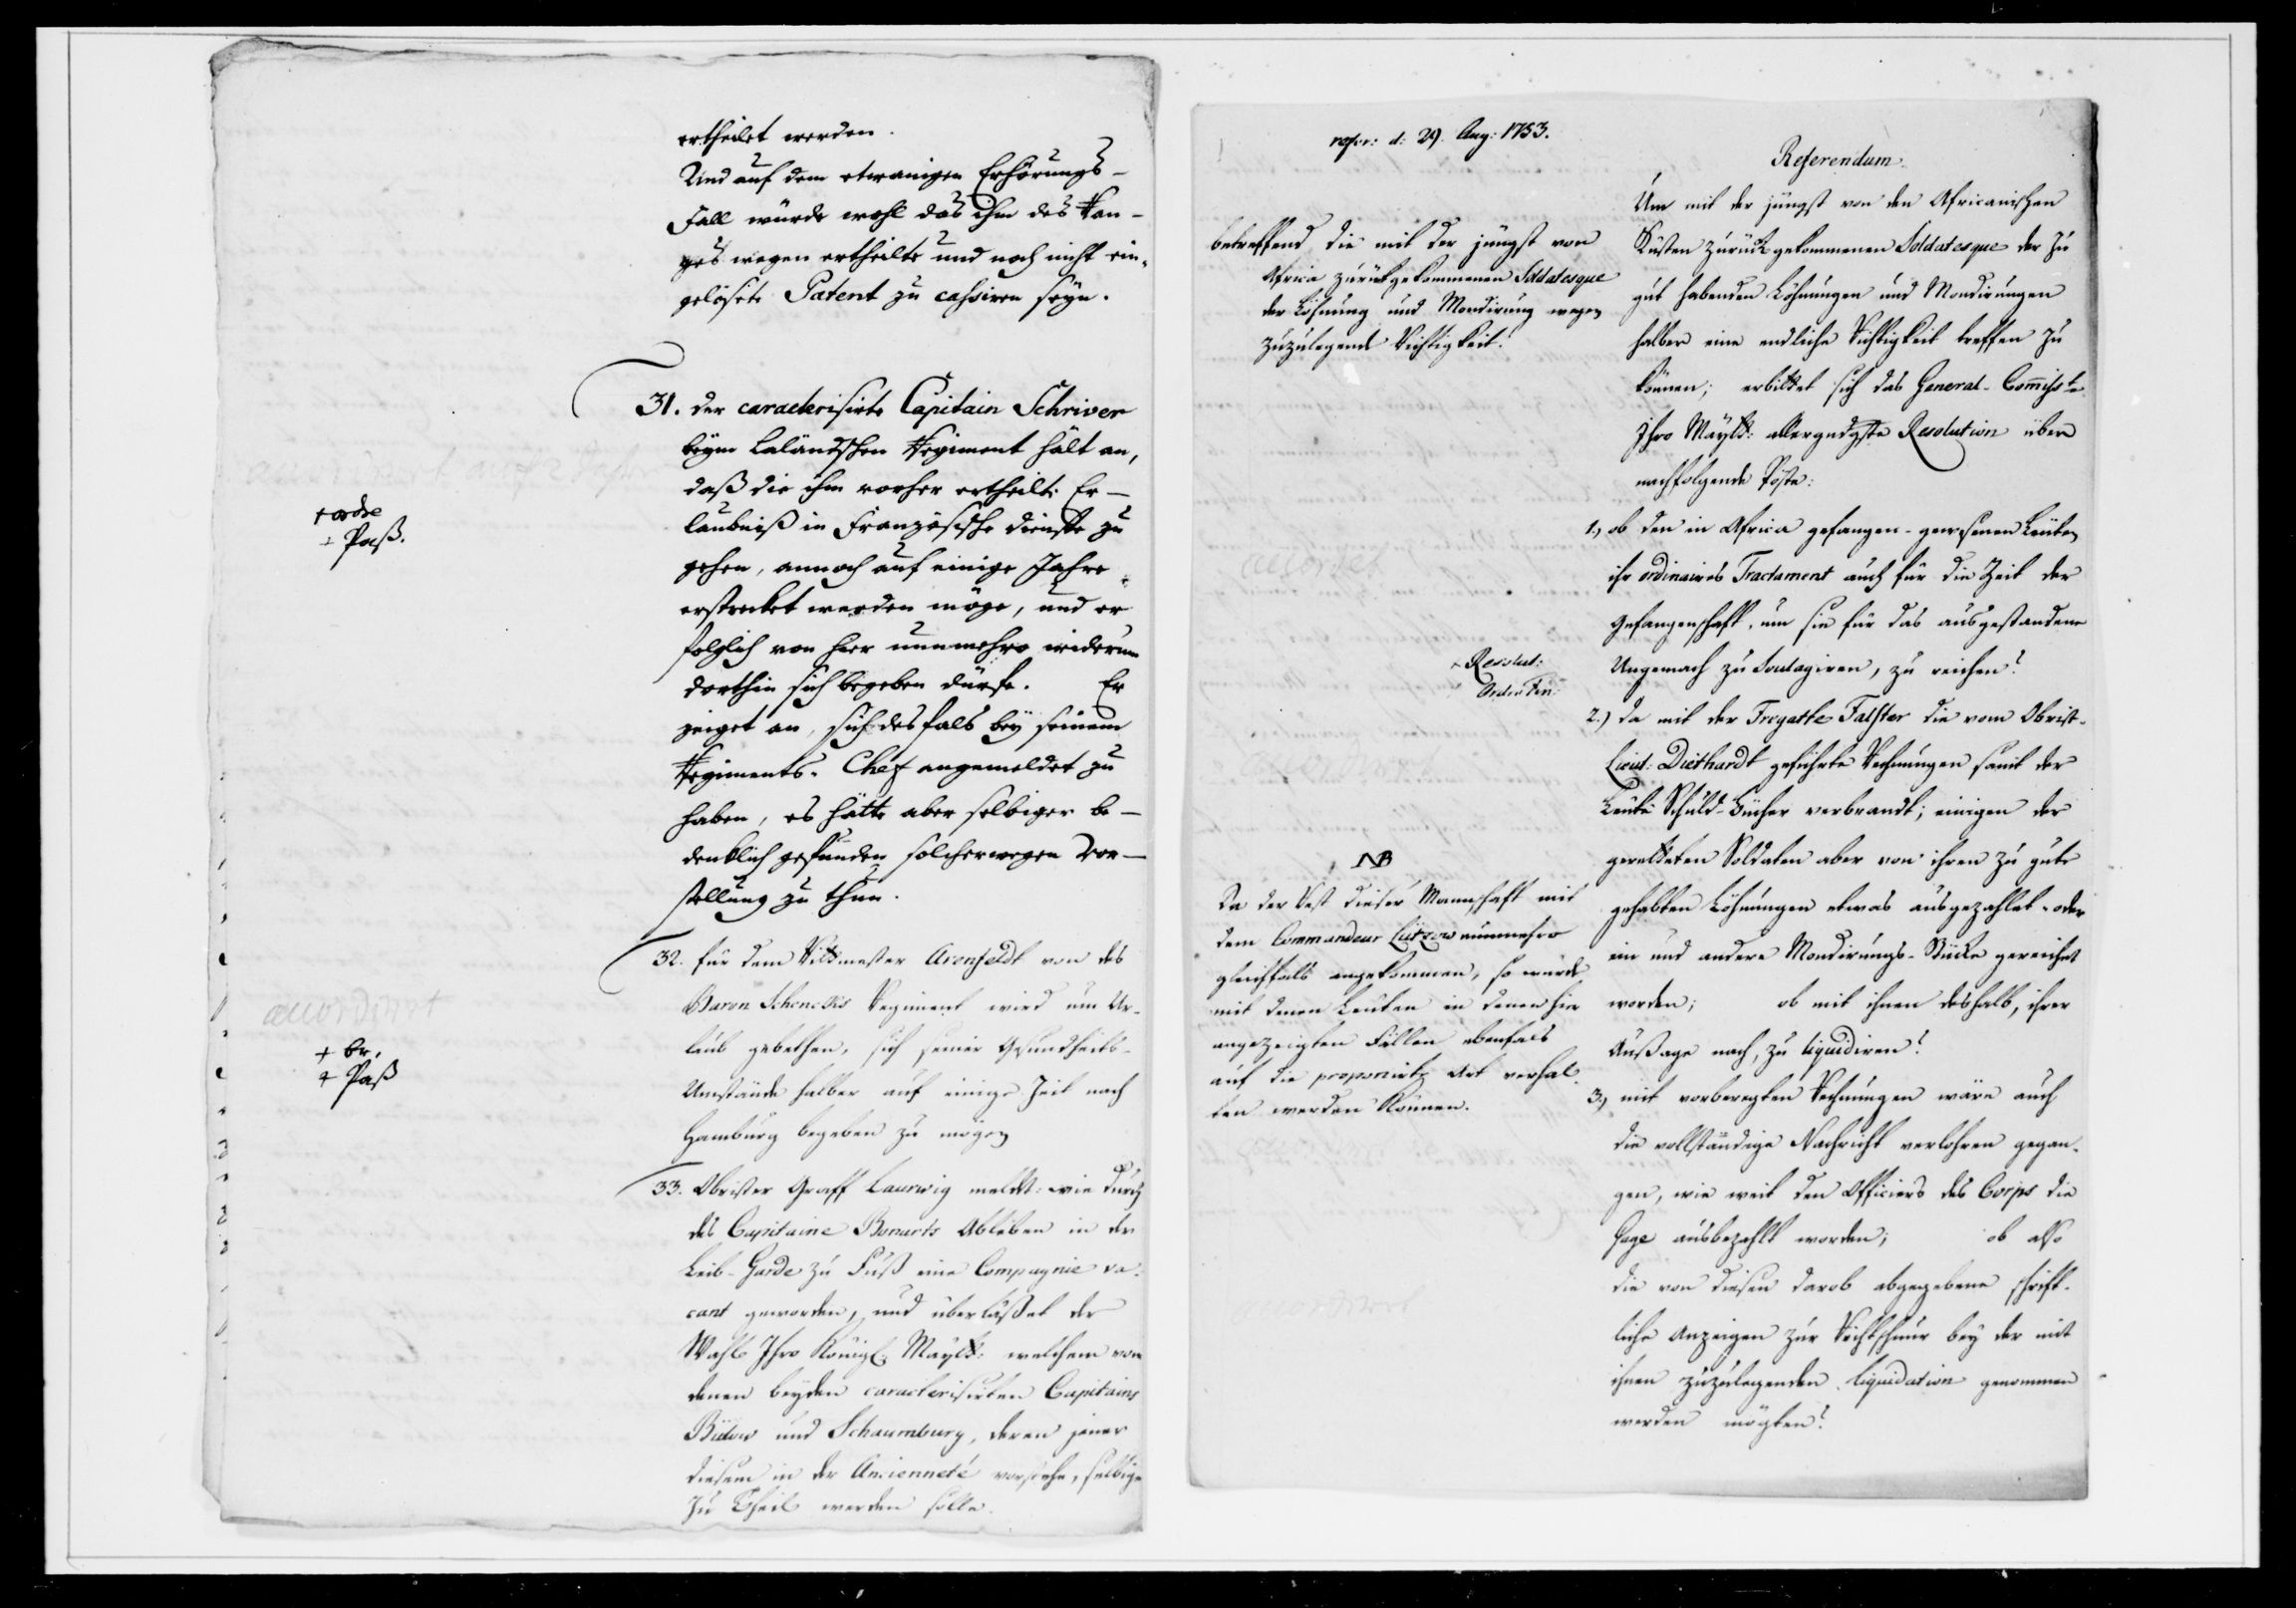 ertheilet werden.
Und auf dem etwanigen Erhörungs-
Fall würde wohl das ihm des Ran-
ges wegen ertheilte und noch nicht ein-
gelösete Patent zu cassiren seyn.
31. der caracterisirte Capitain Schriver
beym Laländschen Regiment hält an,
daß die ihm vorher ertheilte Er-
laubniß in Französische dienste zu
gehen, annoch auf einige Jahre
erstrecket werden möge, und er
folglich von hier nunmehro widerum
dorthin sich begeben dürfe. Er
zeiget an, sich desfals bey seinem
Regiments-Chef angemeldet zu
haben, es hätte aber selbiger be-
denklich gefunden solcherwegen Vor-
stellung zu thun.
+ ordre
+ Paß.
32. für dem Rittmester Arenfeldt von des
Baron Schencks Regiment wird um Ur-
laub gebethen, sich seiner Gesundheits-
Umstände halber auf einige Zeit nach
Hamburg begeben zu mögen
accordirt
+ br.
+ Paß
33. Obrister Graff Laurwig meldt: wie durch
des Capitaine Bonarts Ableben in der
Leib-Garde zu Fuß eine Compagnie va-
cant geworden, und überläßet der
Wahl Ihro Königl. Maytt: welchem von
denen beyden caracterisirten Capitains
Bülow und Schaumburg, deren jener
diesem in der Ancienneté vorstehe, selbige
zu Theil werden solle.
refer: d: 29. Aug: 1753.
betreffend die mit der jüngst von
Africa zurückgekommenen Soldatesque
der Löhnung und Mondirung wegen
zuzulegende Richtigkeit.
+ Resolut:
NB
Da der Rest dieser Mannschaft mit
dem Commandeur Lützow nunmehro
gleichfals angekommen, so würde
mit denen Leuten in denen hie
angezeigten Fällen ebenfals
auf die proponirte Art verhal-
ten werden können.
Referendum.
Um mit der jüngst von den Africanischen
Küsten zurückgekommenen Soldatesque der zu
gut habenden Löhnungen und Mondirungen
halber eine endliche Richtigkeit treffen zu
können; erbittet sich das General-Commiss:
Ihro Maytt: allergndgste Resolution über
nachfolgende Poste:
1.) ob den in Africa gefangen-gewesenen Leuten
ihr ordinaires Tractament auch für die Zeit der
Gefangenschaft, um sie für das ausgestandene
Ungemach zu Soulagiren, zu reichen?
2.) da mit der Fregatte Falster die vom Obrist-
Lieut: Diethardt geführte Rechnungen samt der
Leute Schuld-Bücher verbrandt; einigen der
geretteten Soldaten aber von ihren zu gute
gehabten Löhnungen etwas ausgezahlet-oder
ein und andere Mondirungs-Stücke gereichet
worden; ob mit ihnen deshalb, ihrer
Außage nach, zu liquidiren?
3.) mit vorberegten Rechnungen wäre auch
die vollständige Nachricht verlohren gegan-
gen, wie weit den Officiers des Corps die
Gage ausbezahlt worden; ob also
die von diesen darob abgegebene schrift-
liche Anzeigen zur Richtschnur bey der mit
ihnen zuzulegenden liquidation genommen
werden mögten?